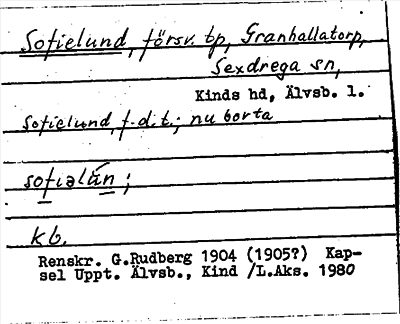 Sofielund, försv. tp, Granhallatorp,
Sexdrega sn,
Kinds hd, Älvsb. l.
Sofielund, f.d.t.; nu borta
sofiəlún;
kb.
Renskr. G.Rudberg 1904 (1905?) Kap-
sel Uppt. Älvsb., Kind /L.Aks. 1980